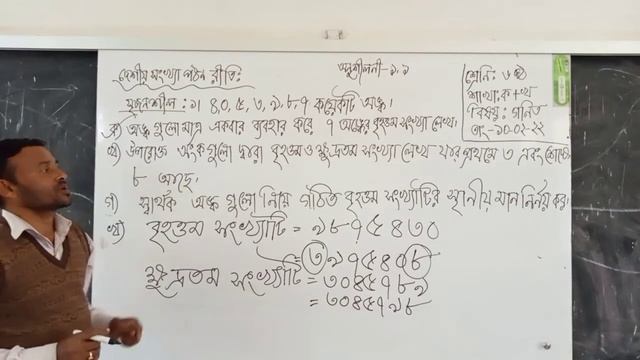 দেশীয় সংখ্যা পঠন রীতি:
অনুশীলনী-১.১
শ্রেণি: ৬ষ্ঠ
শাখা: ক+খ
বিষয়: গণিত
তাং-১০-০২-২২
সৃজনশীল: ১। ৪,০,৫,৩,৯,৮,৭ কয়েকটি অঙ্ক।
ক) অঙ্ক গুলো মাত্র একবার ব্যবহার করে ৭ অঙ্কের বৃহত্তম সংখ্যা লেখ।
খ) উপরোক্ত অংকগুলো দ্বারা বৃহত্তম ও ক্ষুদ্রতম সংখ্যা লেখ যার প্রথমে ৩ এবং শেষে
৮ আছে।
গ) স্বার্থক অঙ্ক গুলো নিয়ে গঠিত বৃহত্তম সংখ্যাটির স্থানীয় মান নির্নয় কর।
খ) বৃহত্তম সংখ্যাটি = ৯৮৭৫৪৩০
= ৩৯৭৫৪০৮
ক্ষুদ্রতম সংখ্যাটি = ৩০৪৫৭৮৯
= ৩০৪৫৭৯৮